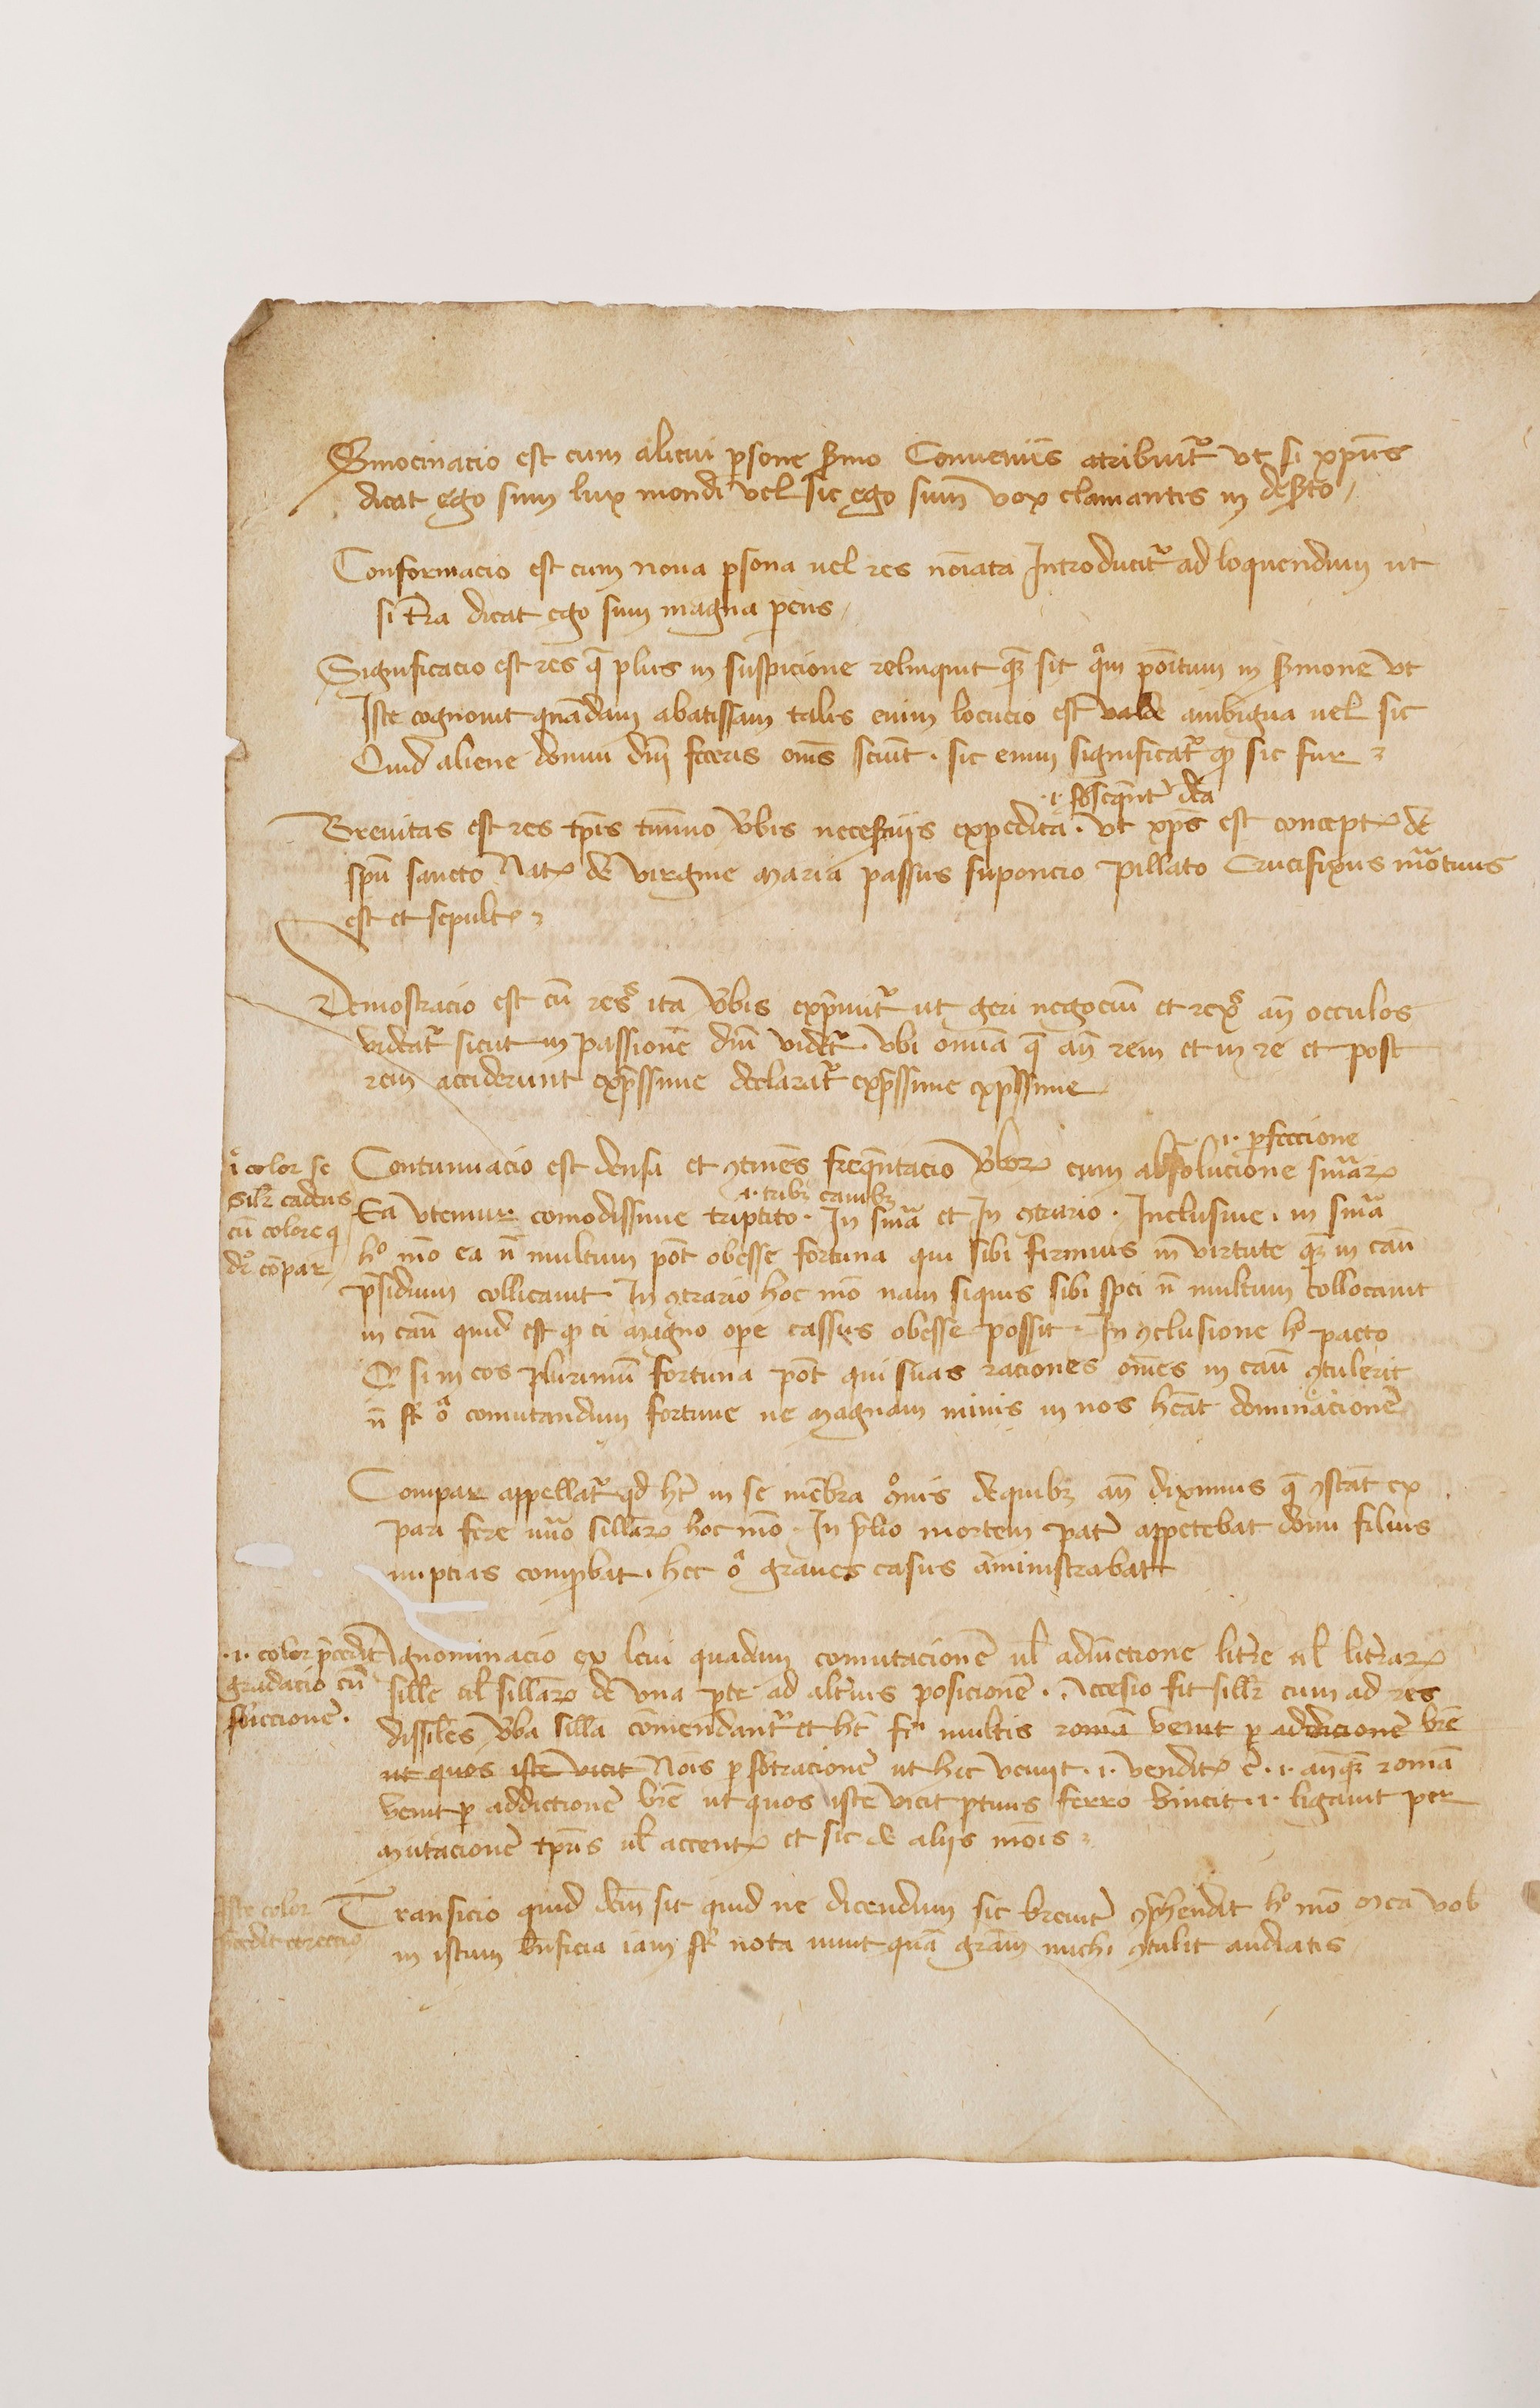 Smocinacio est cum alicui psone smo Conueniẽs atribuit᷑ vt si xp̃us
dicat ego sum lux mondi vel sic ego sum vox clamantis in deẜto
Conformacio est cum noua psona uel res nõiata Introducit᷑ ad loquendum ut
si t̃ra dicat ego sum magna pẽns
Significacio est res q̃ plus in suspicione relinquit qȝ sit q̃m põitum in smone vt
Iste cognouit quãdam abatissam talis enim locucio est valde ambigua uel sic
Quid aliene domui dñi feceris oms̃ sciũt . sic enim significat᷑ ꝙ sic fur
.i. sbseq̃nt᷑ dc̃a
Breuitas est res tp̃is tm̃mo v̾bis neceẜrijs expedita . vt xp̃s est concept⁹ de
spũ sancto Nat⁹ de virgine maria passus suponcio pillato Crucifixus mõtuus
est et sepult⁹
Demostracio est cũ res ita v̾bis exp̃mit᷑ ut geri negociũ et res añ occulos
videat᷑ sicut in passionẽ dñi videt᷑ . vbi om̃ia q̃ añ rem et in re et post
rem acciderunt exp̃ssime declarat᷑ exp̃ssime exp̃ssime
.i. pfeccione
Contunuacio est densa et ꝯtinẽs freq̃ntacio v̾boꝝ cum absolucione sm̃aꝝ
i color se
silr̃ cadens
cũ colore q
dr̃ cõpar
.i. tribȝ causibȝ
Ea vtemur comodissime triptito . In sm̃a et In ꝯtrario . Inclusiue . in sm̃a
hº mõ ea ñ multum põt obesse fortuna qui sibi firmius in virtute qȝ in caũ
p̃sidium collicauit . In ꝯtrario hoc mõ nam siquis sibi spei ñ multum collocauit
in caũ quid est ꝙ ei magno ope cassus obesse possit . In ꝯclusione hº pacto
Q si in eos plurimũ fortuna põt qui suas raciones om̃es in caũ ꝯtulerit
ñ st̃ õ comutandum fortune ne magnam nimis in nos hẽat dominacionẽ
Compar appellat᷑ qd ht̃ in se mẽbra ꝯuis dequibȝ añ diximus q̃ ꝯstãt ex
pari fere nũo sillãꝝ hoc mõ . In p̃lio mortem pat̃ appetebat domi filius
nuptias compbat . hec õ graues casus aministrabat
.i. color p̃cedit
gradacio cũ
sbieccionẽ .
Agnominacio ex leui quadam comutacionẽ ul̃ adiũctione litr̃e ul̃ litr̃aꝝ
sill̃e ul̃ sillãꝝ de vna pte ad alt̃ius posicionẽ . Accesio fit sill̃r cum ad res
dissiles v̾ba silla cõmendant᷑ et ht̃ fr̃ multis romã venit p addicionẽ br̃e
ut quos iste vicit Nois p sbtracionẽ ut hic venijt . i . vendit⁹ ẽ . i . añqȝ romã
venit p addictionẽ br̃e ut quos iste vicit ptinus ferro vincit . i . ligauit per
mutacionẽ tpũs ul̃ accent⁹ et sic de alijs mõis
Iste color
p̃cedit coreccio
Transicio quid dcm̃ sit quid ne dicendum sic breuit̃ ꝯp̃hendit hº mõ mea vob
in istum bñficia iam st̃ nota nunt quã grãm michi ꝯtulit audiatis